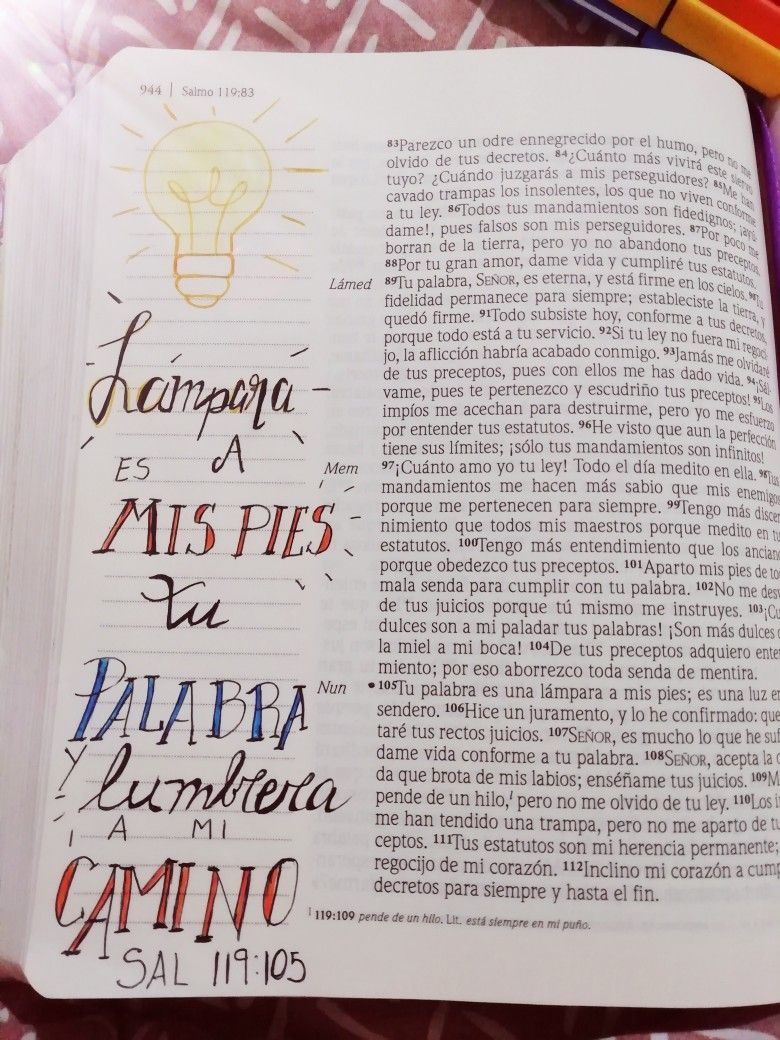 944 | Salmo 119:83
Lámpara
ES A
MIS PIES
Tu
PALABRA
Y lumbrera
A MI
CAMINO
SAL 119:105
83Parezco un odre ennegrecido por el humo, pero no me
olvido de tus decretos. 84¿Cuánto más vivirá este siervo
tuyo? ¿Cuándo juzgarás a mis perseguidores? 85Me han
cavado trampas los insolentes, los que no viven conforme
a tu ley. 86Todos tus mandamientos son fidedignos; ¡ayú-
dame!, pues falsos son mis perseguidores. 87Por poco me
borran de la tierra, pero yo no abandono tus preceptos.
88Por tu gran amor, dame vida y cumpliré tus estatutos.
Lámed 89Tu palabra, SEÑOR, es eterna, y está firme en los cielos. 90Tu
fidelidad permanece para siempre; estableciste la tierra, y
quedó firme. 91Todo subsiste hoy, conforme a tus decretos,
porque todo está a tu servicio. 92Si tu ley no fuera mi regoci-
jo, la aflicción habría acabado conmigo. 93Jamás me olvidaré
de tus preceptos, pues con ellos me has dado vida. 94¡Sál-
vame, pues te pertenezco y escudriño tus preceptos! 95Los
impíos me acechan para destruirme, pero yo me esfuerzo
por entender tus estatutos. 96He visto que aun la perfección
tiene sus límites; ¡sólo tus mandamientos son infinitos!
Mem 97¡Cuánto amo yo tu ley! Todo el día medito en ella. 98Tus
mandamientos me hacen más sabio que mis enemigos
porque me pertenecen para siempre. 99Tengo más discer-
nimiento que todos mis maestros porque medito en
estatutos. 100Tengo más entendimiento que los
porque obedezco tus preceptos. 101Aparto mis pies de
mala senda para cumplir con tu palabra. 102No me
de tus juicios porque tú mismo me instruyes.
dulces son a mi paladar tus palabras! ¡Son más dulces
la miel a mi boca! 104De tus preceptos adquiero
miento; por eso aborrezco toda senda de mentira.
Nun •105Tu palabra es una lámpara a mis pies; es una luz
sendero. 106Hice un juramento, y lo he confirmado: que
taré tus rectos juicios. 107SEÑOR, es mucho lo que he
dame vida conforme a tu palabra. 108SEÑOR, acepta la
da que brota de mis labios; enséñame tus juicios.
pende de un hilo,l pero no me olvido de tu ley. 110Los
me han tendido una trampa, pero no me aparto de
ceptos. 111Tus estatutos son mi herencia permanente;
regocijo de mi corazón. 112Inclino mi corazón a
decretos para siempre y hasta el fin.
l 119:109 pende de un hilo. Lit. está siempre en mi puño.